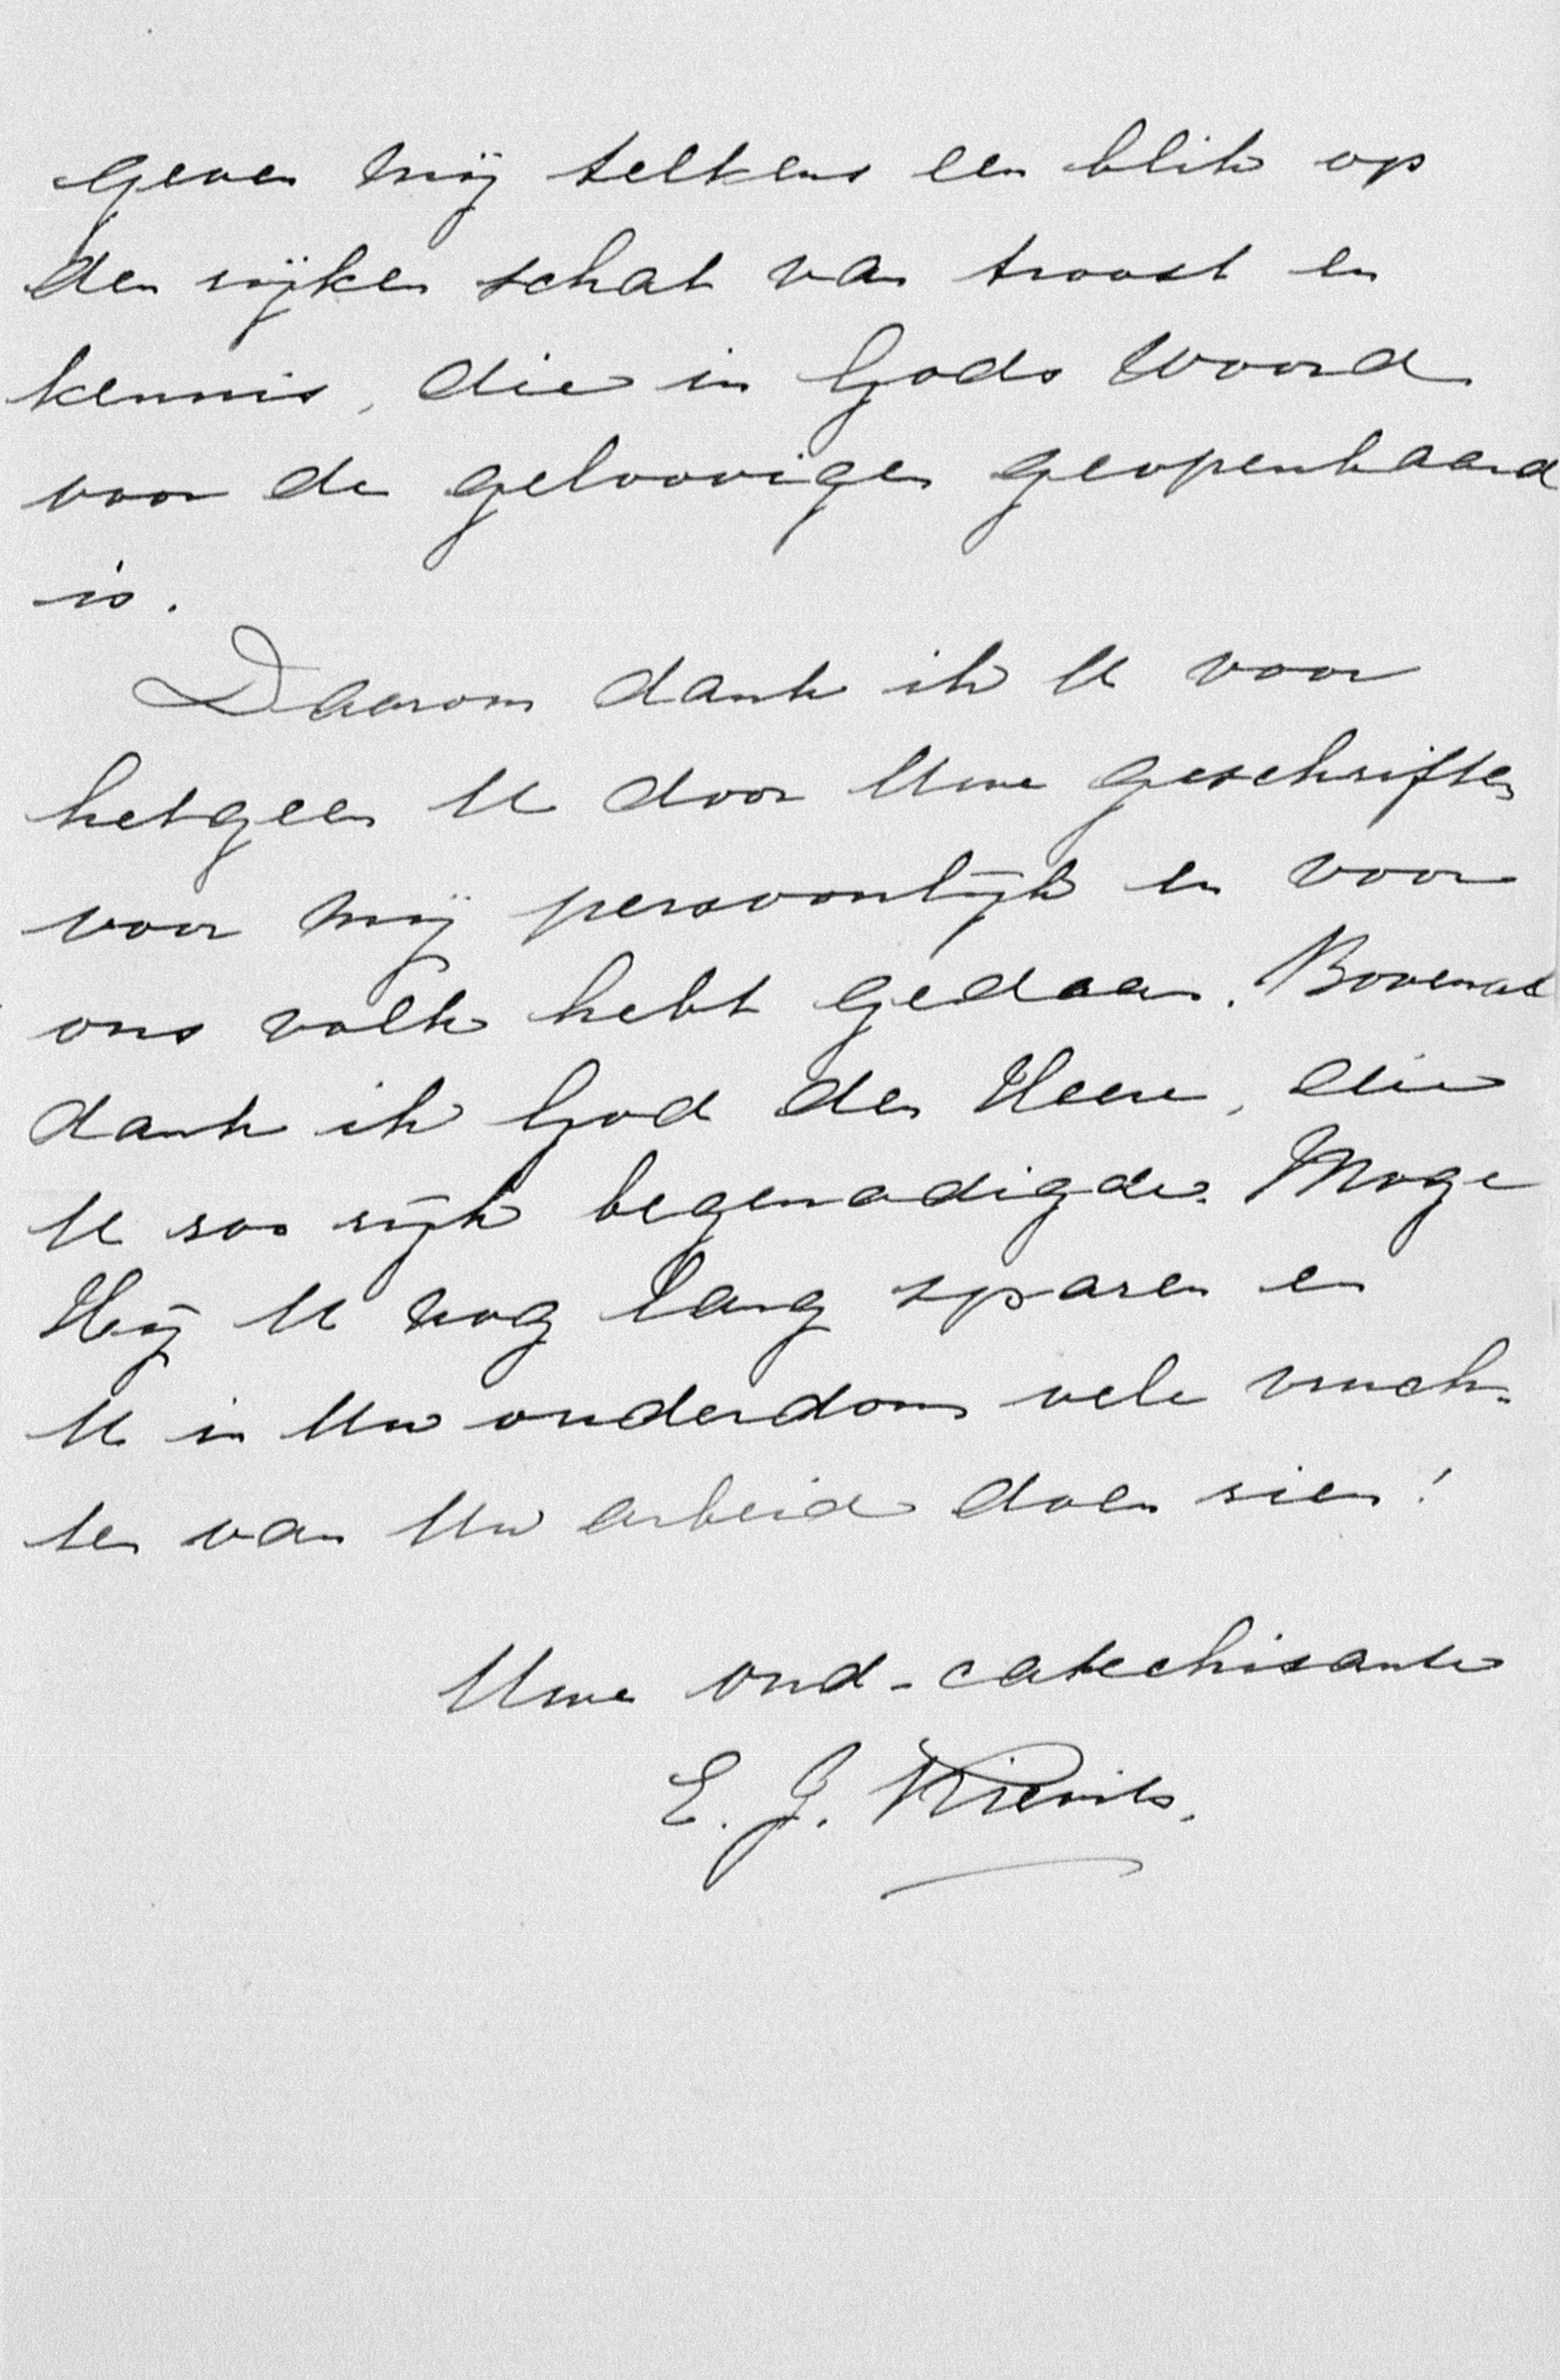 geven mij telkens een blik op
den rijken schat van troost en
kennis, die in Gods Woord
voor de geloovigen geopenbaard
is.
Daarom dank ik U voor
hetgeen U door Uwe geschriften
voor mij persoonlijk en voor
ons volk hebt gedaan. Bovenal
dank ik God den Heere, die
U zoo rijk begenadigde. Moge
Hij U nog lang sparen en
U in Uw ouderdom vele vruch-
ten van Uw arbeid doen zien!
Uwe oud-catechisante
E. J. Kievits.